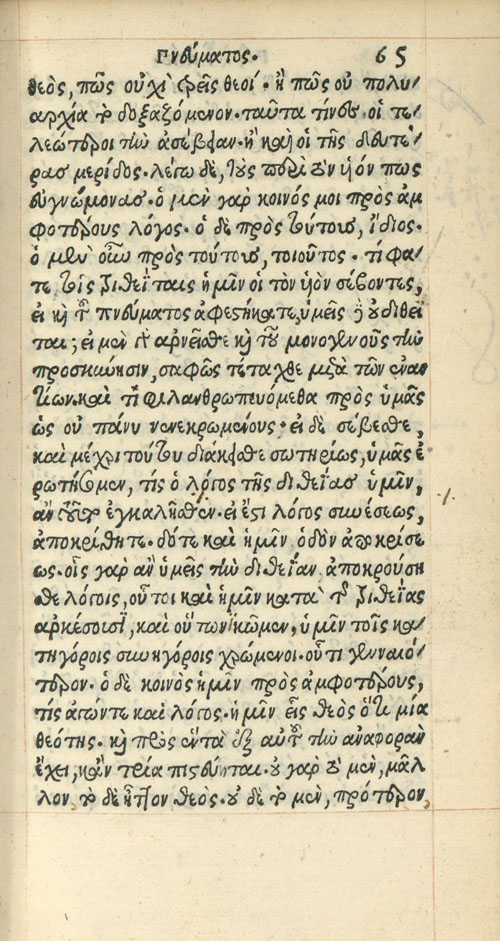 Πνεύματος. 65
θεὸς, πῶς οὐχὶ τρεῖς θεοί. ἢ πῶς οὐ πολυ
αρχία τὸ δοξαζόμενον. ταῦτα τίνες. οἱ τε
λεώτεροι τὴν ἀσέβειαν. ἢ καὶ οἱ τῆς δευτέ
ρας μερίδος. λέγω δὲ, τοὺς περὶ τὸν υἱόν πως
εὐγνώμονας. ὁ μὲν γὰρ κοινός μοι πρὸς ἀμ
φοτέρους λόγος. ὁ δὲ πρὸς τούτους, ἴδιος.
ὁ μὲν οὖν πρὸς τούτους, τοιοῦτος. τί φα
τε τοῖς τριθεΐταις ἡμῖν οἱ τὸν υἱὸν σέβοντες,
εἰ καὶ τοῦ πνεύματος ἀφεστήκατε, ὑμεῖς οὐ διθεῖ
ται; εἰ μὲν γὰρ ἀρνεῖσθε καὶ τοῦ μονογενοῦς τὴν
προσκύνησιν, σαφῶς τέταχθε μετὰ τῶν ἐναν
τίων. καὶ τί φιλανθρωπευόμεθα πρὸς ὑμᾶς
ὡς οὐ πάνυ νενεκρωμένους. εἰ δὲ σέβεσθε,
καὶ μέχρι τούτου διάκεισθε σωτηρίως, ὑμᾶς ἐ
ρωτήσομεν, τίς ὁ λόγος τῆς διθεΐας ὑμῖν,
ἂν τοῦτο ἐγκαλῆσθε. εἰ ἔστι λόγος συνέσεως,
ἀποκρίθητε. δότε καὶ ἡμῖν ὁδὸν ἀποκρίσε
ως. οἷς γὰρ ἂν ὑμεῖς τὴν διθεΐαν ἀποκρούση
σθε λόγοις, οὗτοι καὶ ἡμῖν κατὰ τῆς τριθεΐας
ἀρκέσουσι, καὶ οὕτω νικῶμεν, ὑμῖν τοῖς κα
τηγόροις συνηγόροις χρώμενοι. οὗ τί γενναιό
τερον. ὁ δὲ κοινὸς ἡμῖν πρὸς ἀμφοτέρους,
τίς ἀγών τε καὶ λόγος. ἡμῖν εἷς θεὸς ὅτι μία
θεότης. καὶ πρὸς ἓν τὰ ἐξ αὐτοῦ τὴν ἀναφορὰν
ἔχει, κἂν τρία πιστεύηται. οὐ γὰρ τὸ μὲν, μᾶλ
λον τὸ δὲ ἧττον θεὸς. οὐδὲ τὸ μὲν, πρότερον